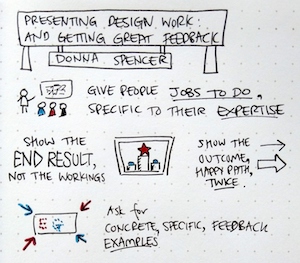 PRESENTING DESIGN WORK:
AND GETTING GREAT FEEDBACK
DONNA SPENCER
GIVE PEOPLE JOBS TO DO,
SPECIFIC TO THEIR EXPERTISE
SHOW THE
END RESULT,
NOT THE WORKINGS
SHOW THE
OUTCOME,
HAPPY PATH,
TWICE.
ASK for
CONCRETE, SPECIFIC, FEEDBACK
EXAMPLES